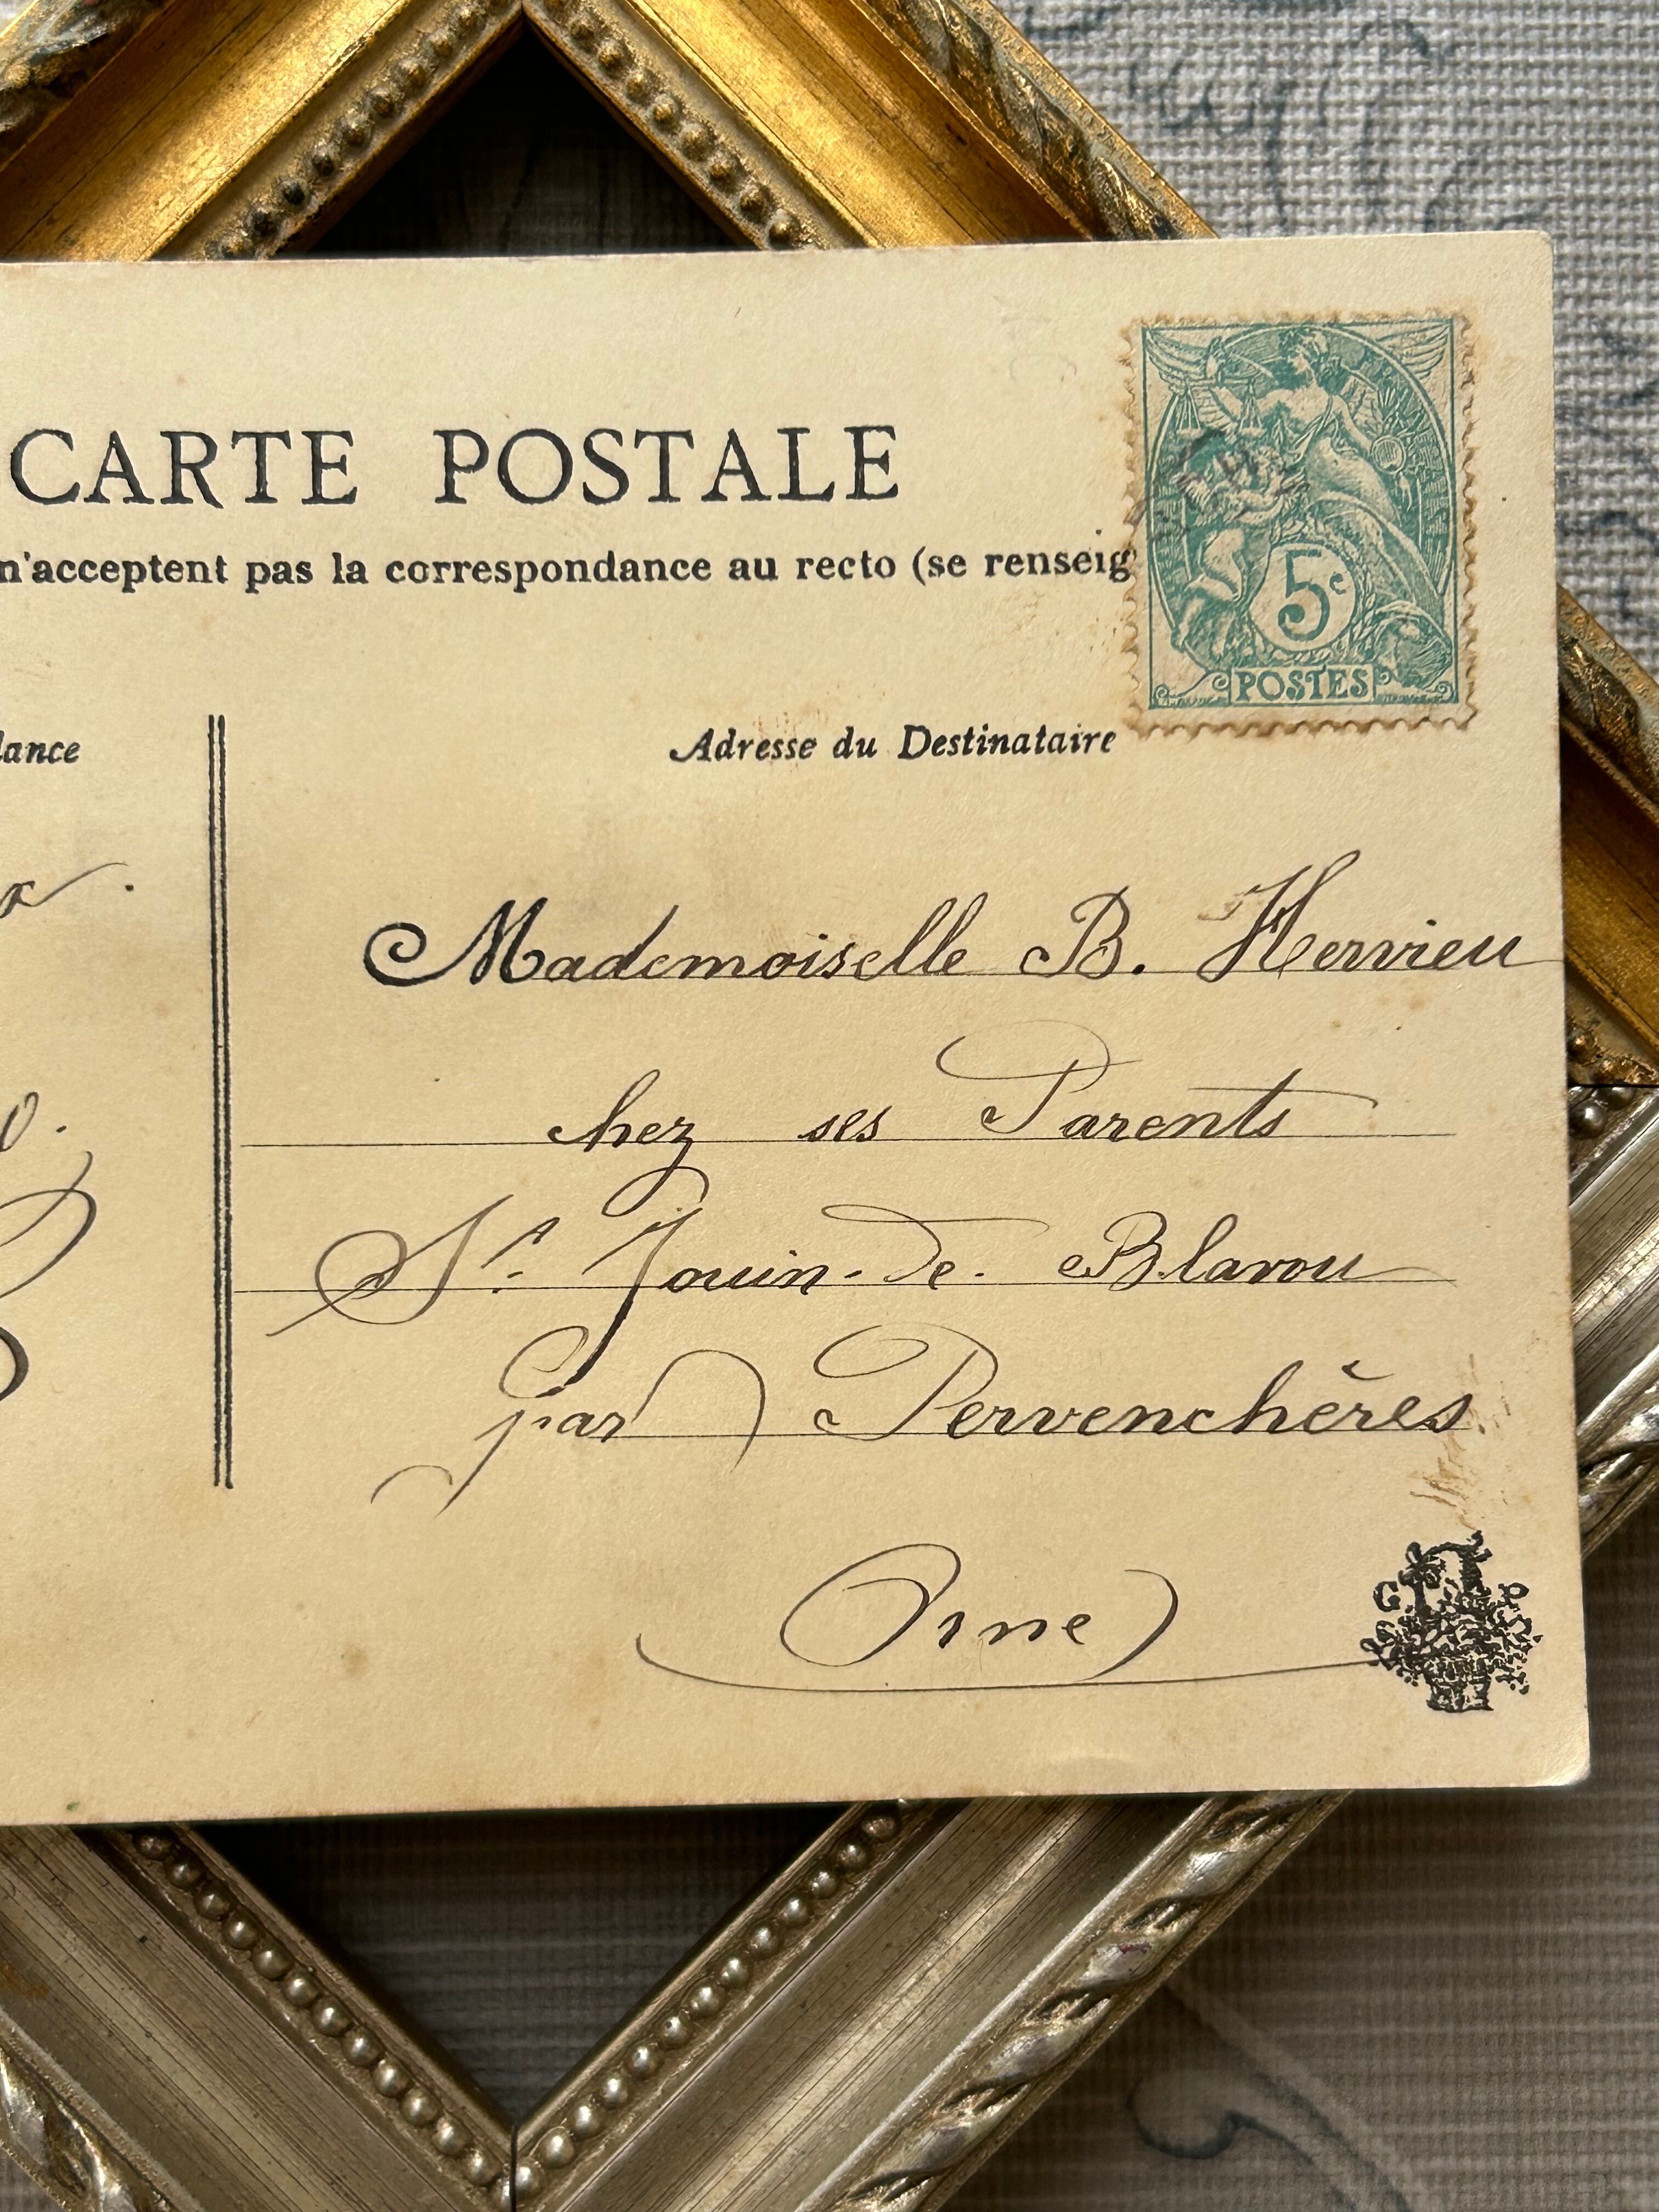 CARTE POSTALE
n'acceptent pas la correspondance au recto (se renseig
5c
POSTES
Adresse du Destinataire
Mademoiselle B. Hervieu
chez ses Parents
St. Jouin-de-Blavou
par Pervenchères
Orne